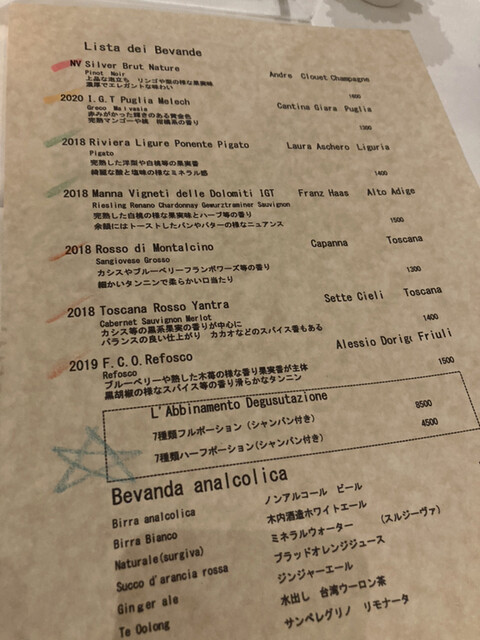 Lista dei Bevande
NV Silver Brut Nature
Pinot Noir Andre Clouet Champagne
上品な泡立ち リンゴや梨の様な果実味
濃厚でエレガントな味わい 1600
2020 I.G.T Puglia Melech
Greco Malvasie Cantina Giara Puglia
赤みがかった輝きのある黄金色
完熟マンゴーや桃 柑橘系の香り 1300
2018 Riviera Ligure Ponente Pigato Laura Aschero Liguria
Pigato
完熟した洋梨や白桃等の果実香
綺麗な酸と塩味の様なミネラル感 1400
2018 Manna Vigneti delle Dolomiti IGT Franz Haas Alto Adige
Riesling Renano Chardonnay Gewurztraminer Sauvignon
完熟した白桃の様な果実味とハーブ等の香り
余韻にはトーストしたパンやバターの様なニュアンス 1500
2018 Rosso di Montalcino Capanna Toscana
Sangiovese Grosso
カシスやブルーベリーフランボワーズ等の香り
細かいタンニンで柔らかい口当たり 1300
2018 Toscana Rosso Yantra Sette Cieli Toscana
Cabernet Sauvignon Merlot
カシス等の黒系果実の香りが中心に
バランスの良い仕上がり カカオなどのスパイス香もある 1400
2019 F.C.O.Refosco Alessio Dorigo Friuli
Refosco
ブルーベリーや熟した木苺の様な香り果実香が主体
黒胡椒の様なスパイス等の香り滑らかなタンニン 1500
L'Abbinamento Degusutazione
7種類フルポーション (シャンパン付き) 8500
7種類ハーフポーション(シャンパン付き) 4500
Bevanda analcolica
Birra analcolica ノンアルコール ビール
Birra Bianco 木内酒造ホワイトエール
Naturale(surgiva) ミネラルウォーター (スルジーヴァ)
Succo d'arancia rossa ブラッドオレンジジュース
Ginger ale ジンジャーエール
Te Oolong 水出し 台湾ウーロン茶
サンペレグリノ リモナータ